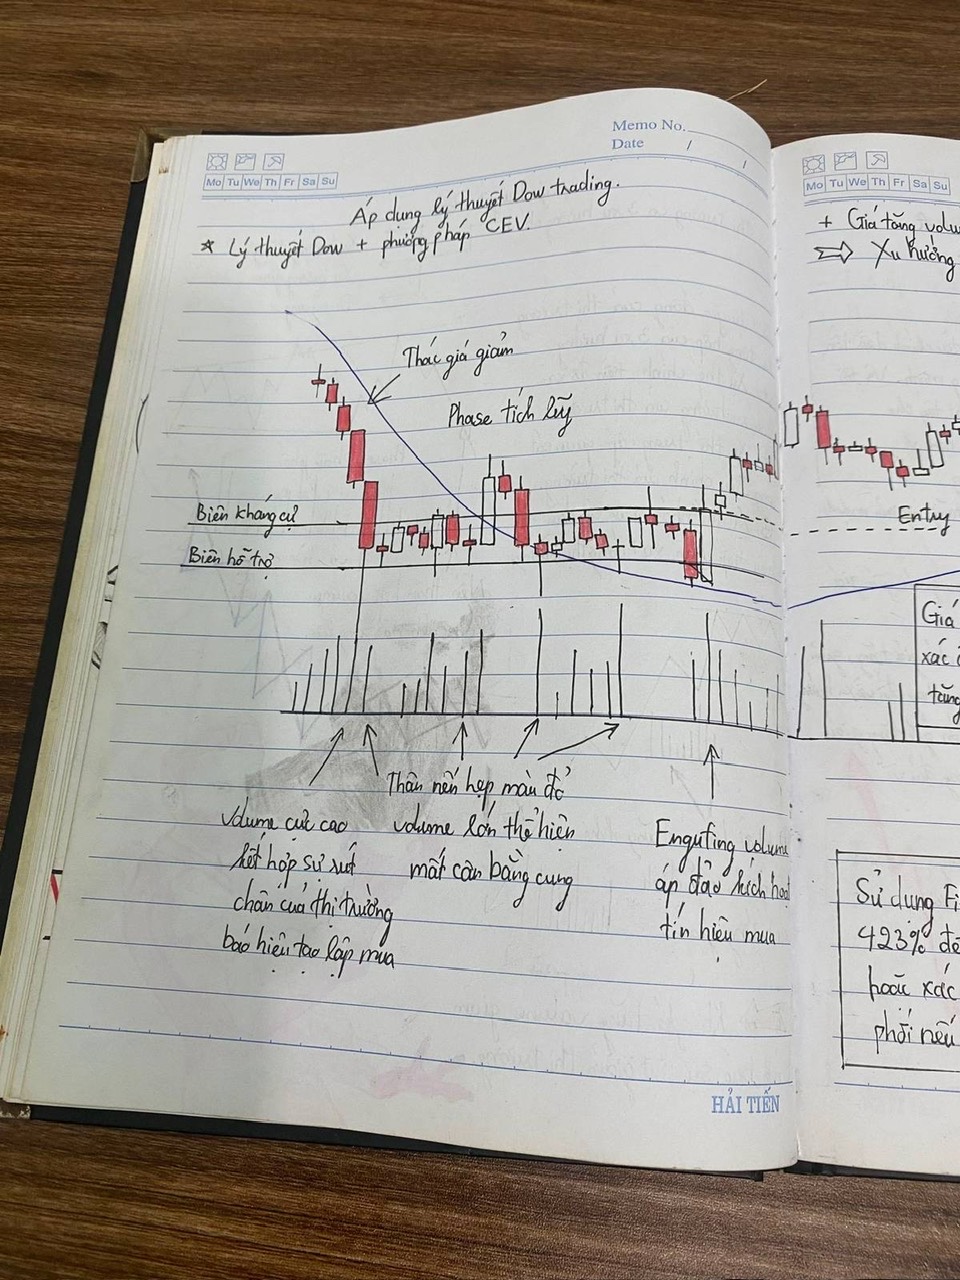 Memo No.
Date / /
Mo Tu We Th Fr Sa Su
Áp dụng lý thuyết Dow trading.
* Lý thuyết Dow + phương pháp CEV.
Thác giá giảm
Phase tích lũy
Biên kháng cự
Biên hỗ trợ
Thân nến hẹp màu đỏ
volume lớn thể hiện
mất cân bằng cung
volume cực cao
kết hợp sự rút
chân của thị trường
báo hiệu tạo lập mua
Engufing volume
áp đảo kích hoạt
tín hiệu mua
HẢI TIẾN
Mo Tu We Th Fr Sa Su
+ Giá tăng volu
⇨ Xu hướng
Entry
Giá
xác
tăng
Sử dụng Fi
423% để
hoặc xác
phối nếu